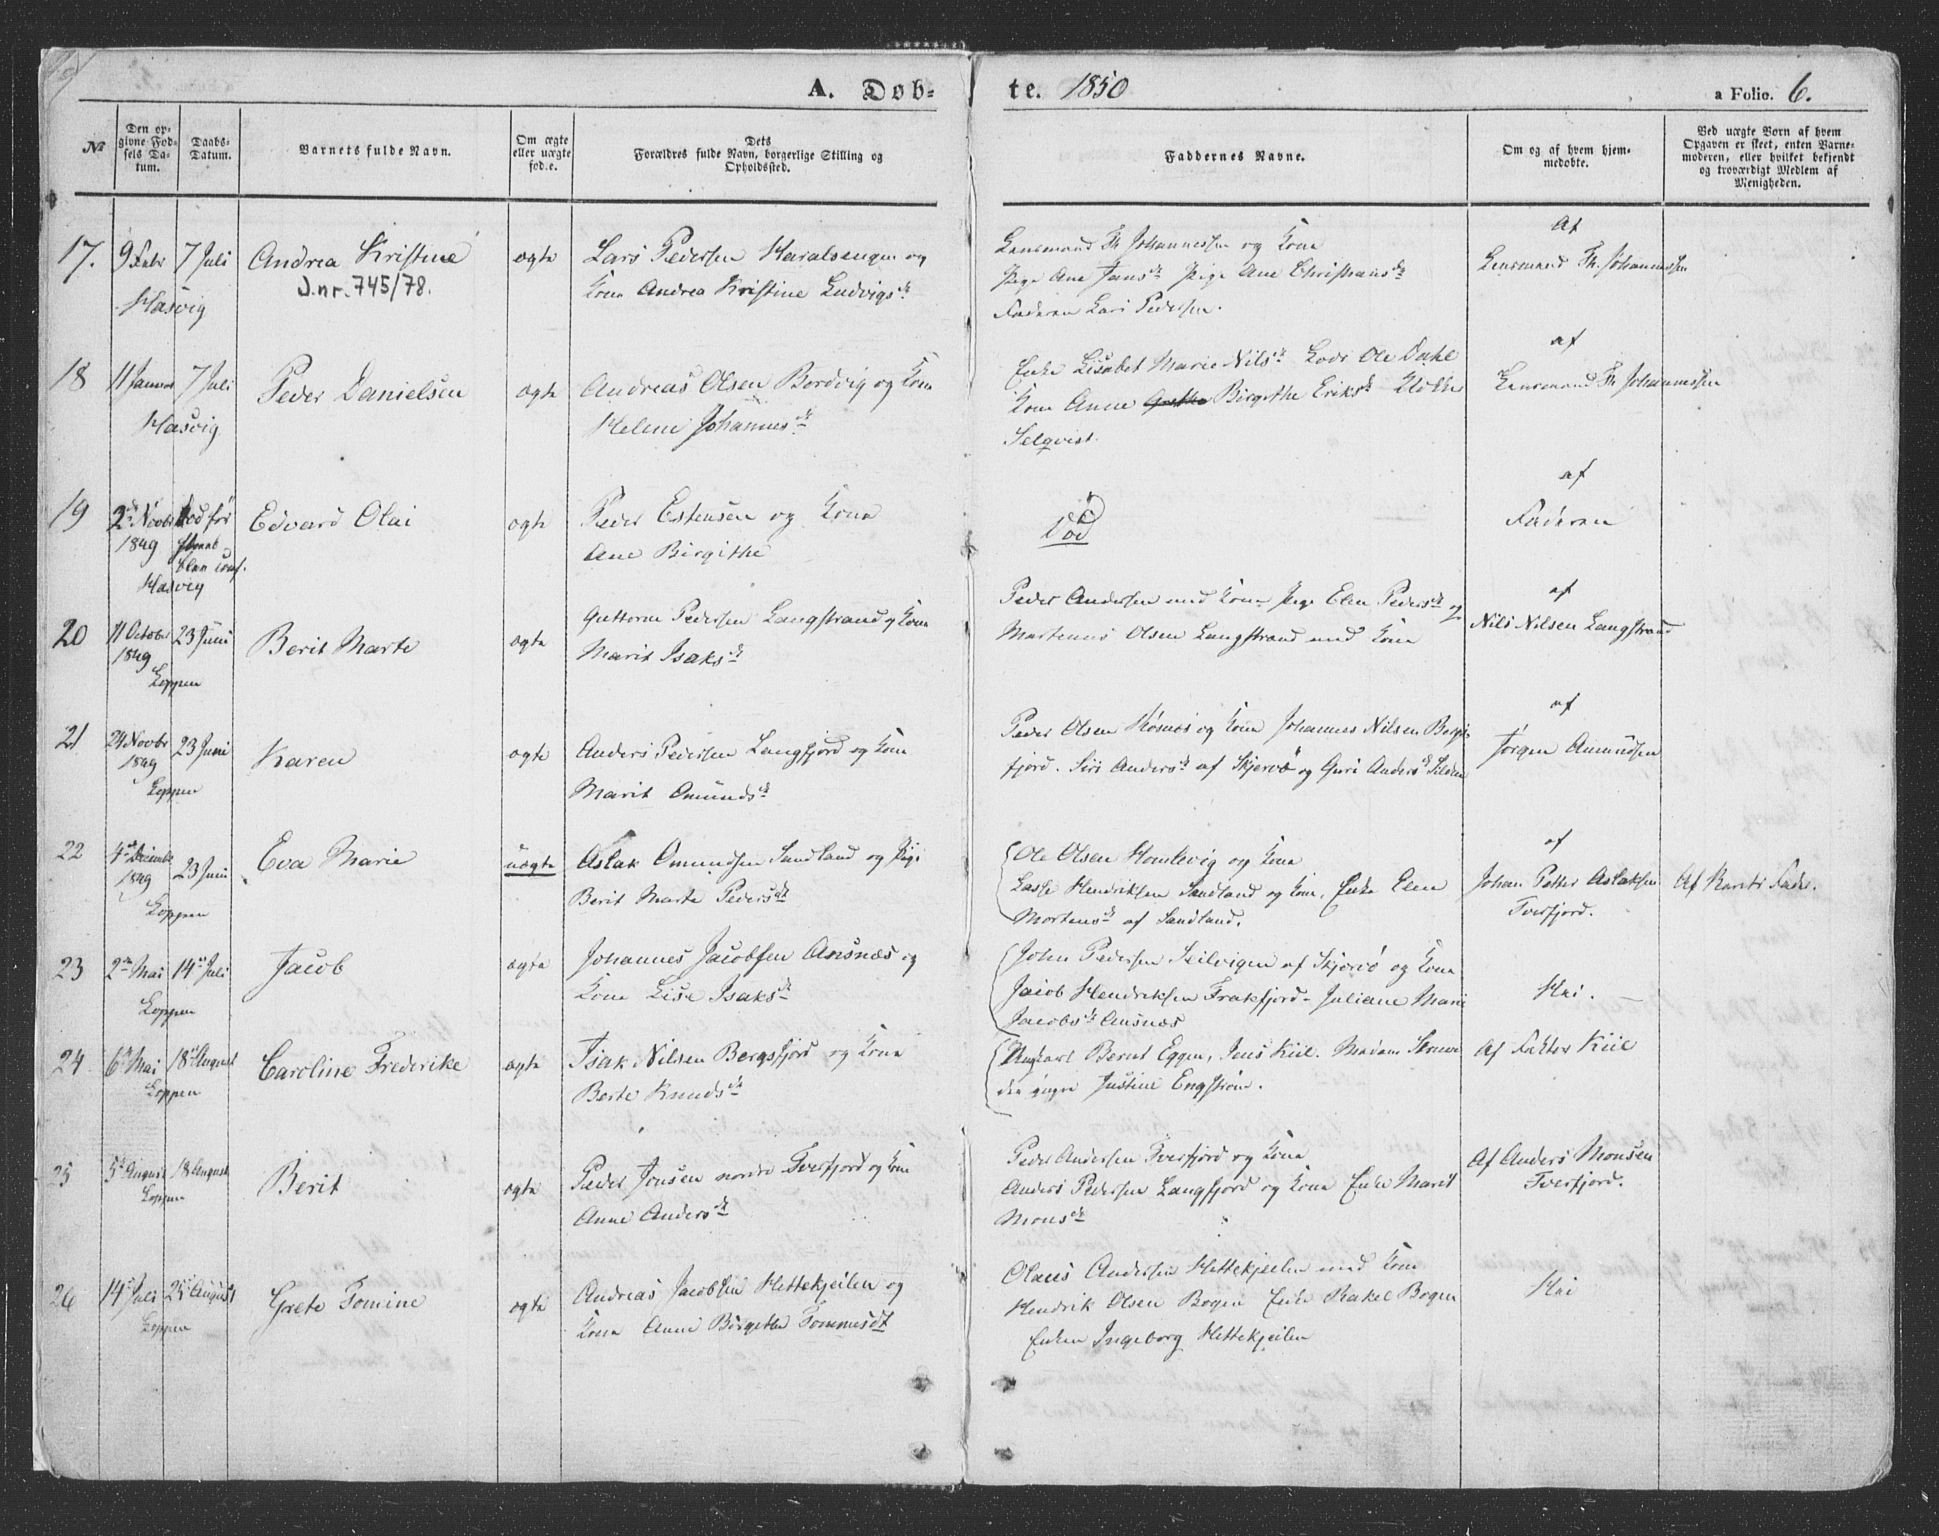 A. Døb-
te. 1850
a Folio. 6.
No
Den opgivne Fødsels Datum.
Daabs-Datum.
Barnets fulde Navn.
Om ægte eller uægte fød.e.
Dets
Forældres fulde Navn, borgerlige Stilling og
Opholdssted.
Faddernes Navne.
Om og af hvem hjem-
medøbte.
Ved uægte Børn af hvem
Opgaven er skeet, enten Barne-
moderen, eller hvilket bekjendt
og troværdigt Medlem af
Menigheden.
17. 9 Febr 7 Juli Andrea Kristine ægte Lars Pedersen Haralsengen og
Hasvig J.nr. 745/78. Kone Andrea Kristine Ludvigsdt
Lensmand Th Johannessen og Kone
Pige Ane Jansdt Pige Ane Christiansdt
Faderen Lars Pedersen.
Af
Lensmand Th. Johannessen
18 11 Januar 7 Juli Peder Danielsen ægte Andreas Olsen Bordvig og Kone
Hasvig Helene Johannesdt
Enke Lisabet Marie Nilsdt Lods Ole Dahl
Kone Anne Birgithe Eriksdt Klokker
Selqvist.
af
Lensmand Th Johannessen
19 2den Novbr 1849 Død før
Hasvig
Edvard Olai ægte Peder Estensen og Kone
Ane Birgithe
Død
af
Faderen
20 11 October 1849 23 Juni Berit Marte ægte Guttorm Pedersen Langstrand og Kone
Loppen Marit Isaksdt
Peder Andersen med Kone Pige Elen Pedersdt og
Martenus Olsen Langstrand med Kone
af
Nils Nilsen Langstrand
21 24 Novbr 1849 23 Juni Karen ægte Anders Pedersen Langfjord og Kone
Loppen Marit Omundsdt
Peder Olsen og Kone Johannes Nilsen Bergs-
fjord. Siri Andersdt af Skjervø og Guri Andersdt Silden
af
Jørgen Amundsen
22 4de Decembr 1849 23 Juni Eva Marie uægte Aslak Omundsen Sandland og Pige
Loppen Berit Marte Pedersdt
Ole Olsen Homlevig og Kone
Lasse Hendriksen Sandland og Kone, Enke Elen
Mortensdt af Sandland.
af
Johan Petter Aslaksen
Tverfjord.
Af Barnets Fader.
23 2den Mai 14de Juli Jacob ægte Johannes Jacobsen Ansnæs og
Loppen Kone Lise Isaksdt
John Pedersen Seilvigen af Skjervø og Kone
Jacob Hendriksen Frakfjord - Juliane Marie
Jacobsdt Ansnæs
Nei.
24 6te Mai 18de August Caroline Frederike ægte Isak Nilsen Bergsfjord og Kone
Loppen Berte Knudsdt
Ungkarl Bernt Eggen, Jens Kiil.
den yngre Justine Engstrøm.
Af Faktor Kiil
25 5te August 18 August Berit ægte Peder Jonsen nordre Tverfjord og Kone
Loppen Anne Andersdt
Peder Andersen Tverfjord og Kone
Anders Pedersen Langfjord og Kone Enke Marit
Monsdt
Af Anders Monsen
Tverfjord.
26 14de Juli 25de August Grete Tomine ægte Andreas Jacobsen Hettekjeilen og
Loppen Kone Anne Birgitte Tommesdt
Olaus Andersen Hettekjeilen med Kone
Hendrik Olsen Bogen Enke Rakel Bogen
Enken Ingeborg Hettekjeilen
Nei